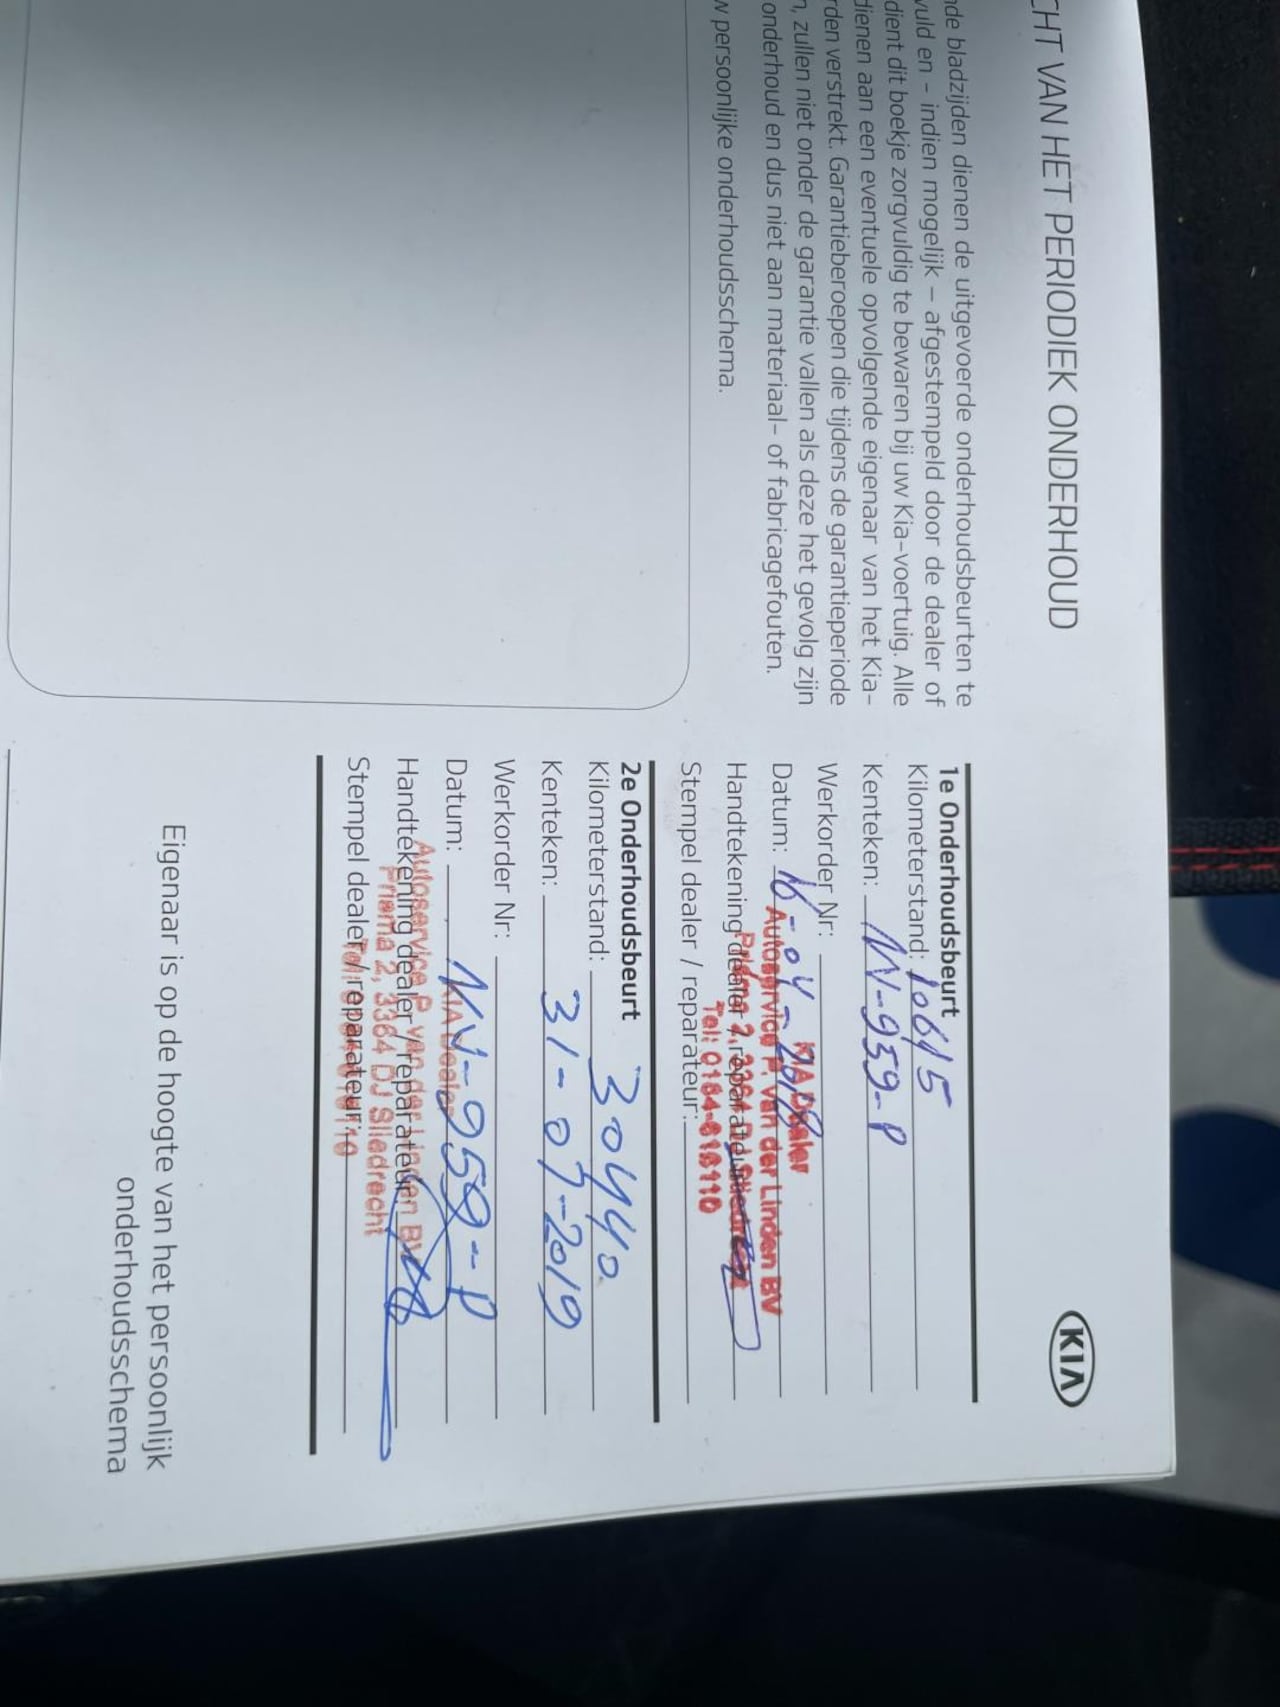 CHT VAN HET PERIODIEK ONDERHOUD
KIA
nde bladzijden dienen de uitgevoerde onderhoudsbeurten te
vuld en - indien mogelijk – afgestempeld door de dealer of
dient dit boekje zorgvuldig te bewaren bij uw Kia-voertuig. Alle
dienen aan een eventuele opvolgende eigenaar van het Kia-
rden verstrekt. Garantieberoepen die tijdens de garantieperiode
n, zullen niet onder de garantie vallen als deze het gevolg zijn
onderhoud en dus niet aan materiaal- of fabricagefouten.
w persoonlijke onderhoudsschema.
1e Onderhoudsbeurt
Kilometerstand: 10615
Kenteken: NV-959-P
Werkorder Nr:
Datum: 16-04-2018
Handtekening dealer / reparateur:
Stempel dealer / reparateur:
KIA Dealer
Autoservice P. van der Linden BV
Prisma 2, 3364 DJ Sliedrecht
Tel: 0184-618110
2e Onderhoudsbeurt
Kilometerstand: 30440
Kenteken: 31-07-2019
Werkorder Nr:
Datum: NV-959-P
Handtekening dealer / reparateur:
Stempel dealer / reparateur:
KIA Dealer
Autoservice P. van der Linden BV
Prisma 2, 3364 DJ Sliedrecht
Eigenaar is op de hoogte van het persoonlijk
onderhoudsschema